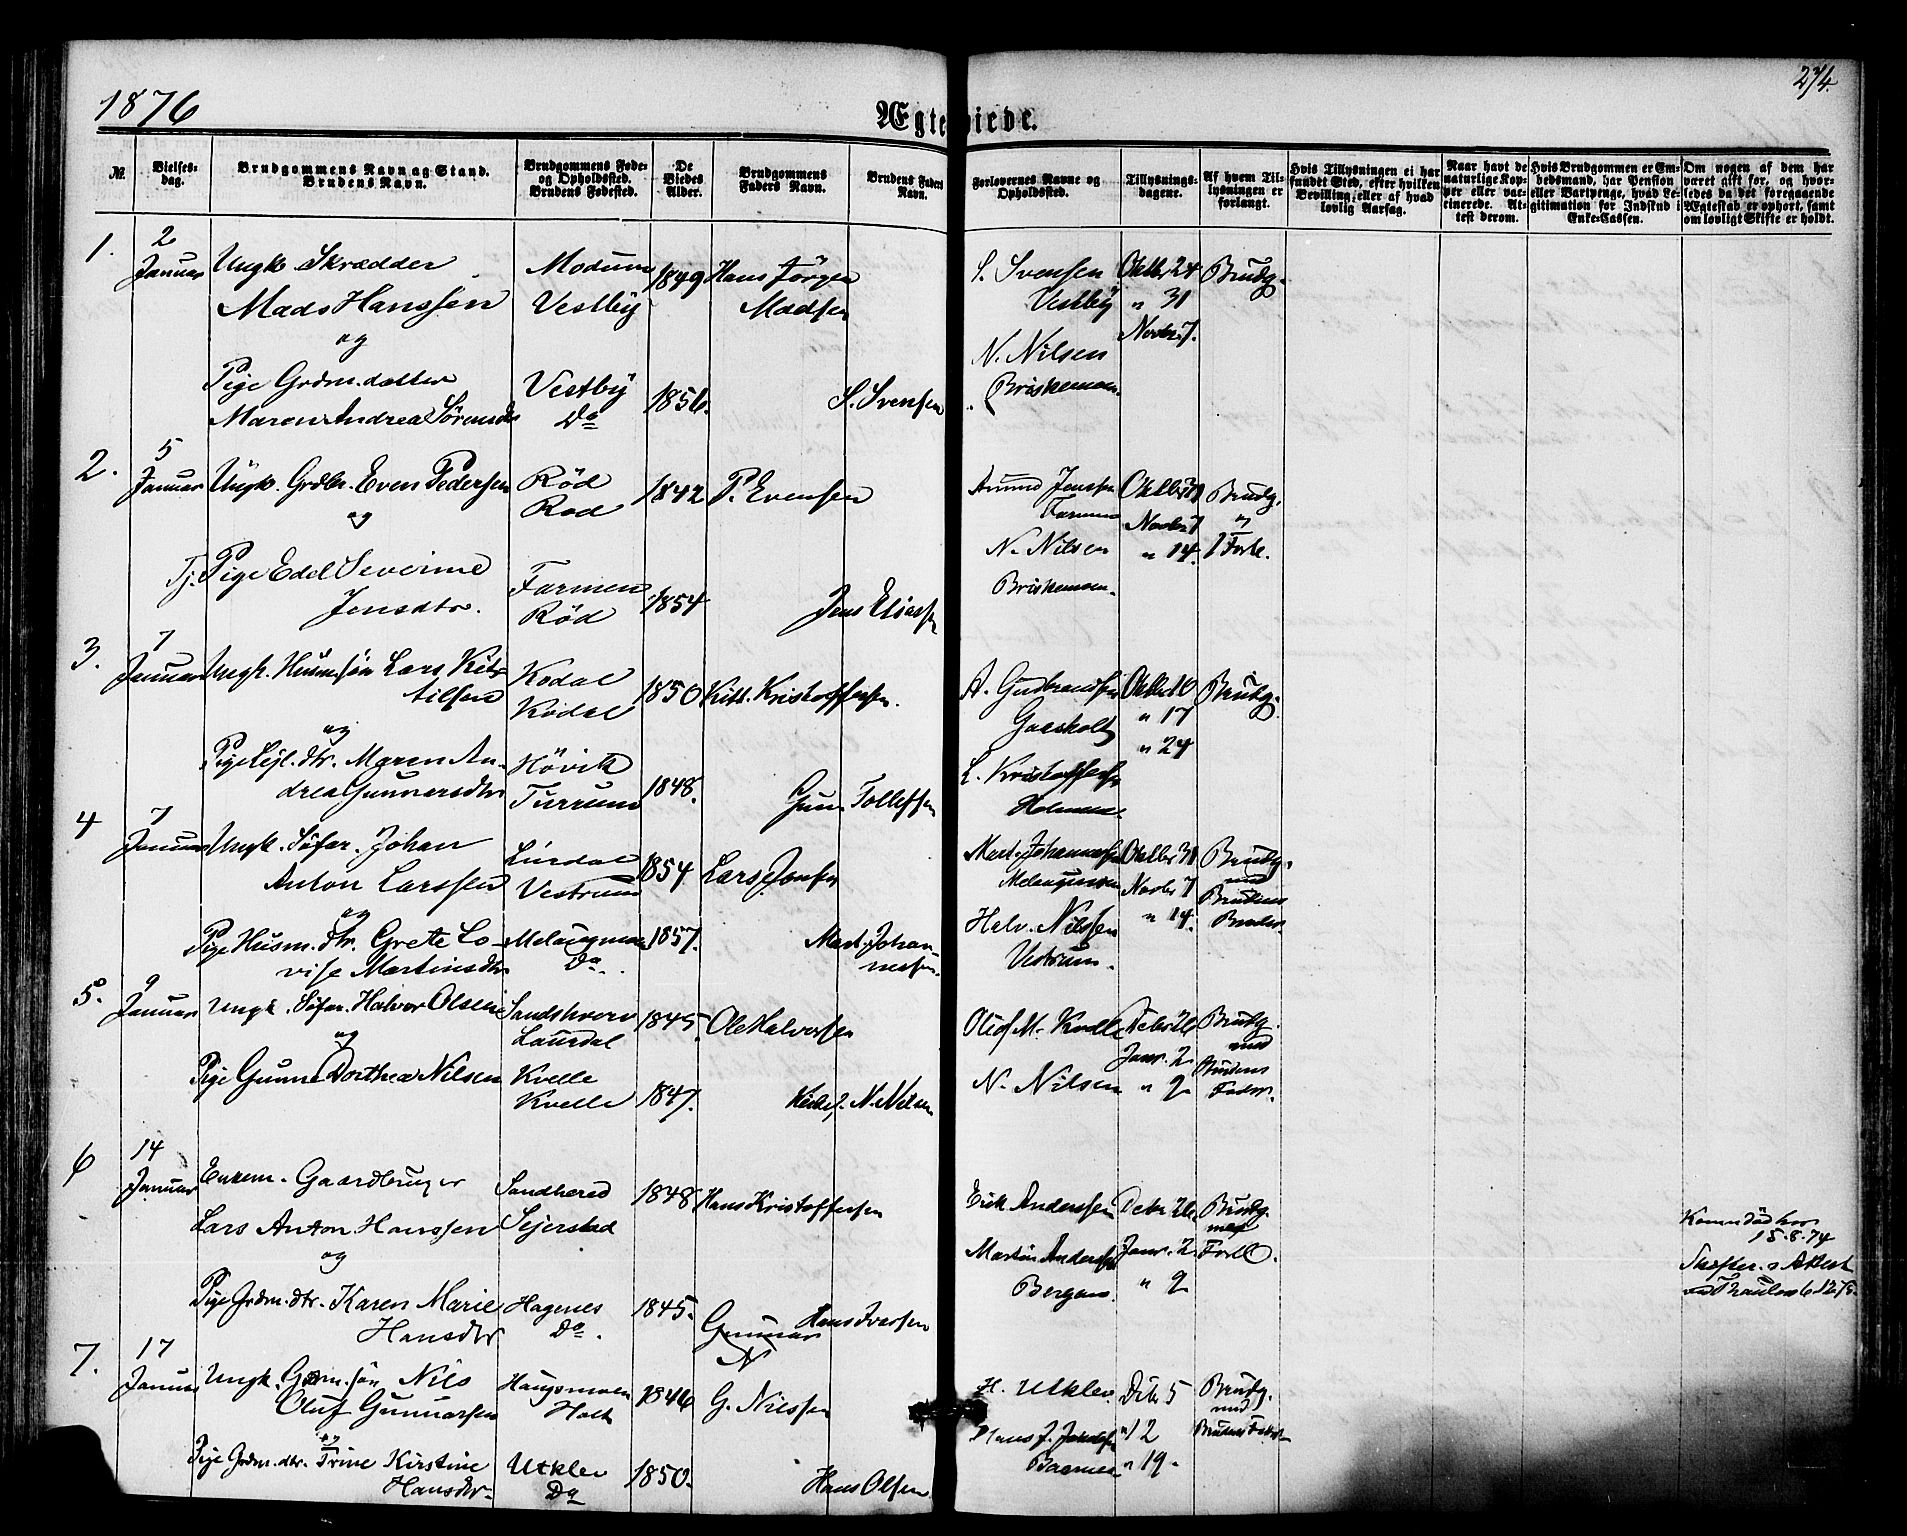 1876
Ægteviede.
274.
№
Vielses-
dag.
Brudgommens Navn og Stand.
Brudens Navn.
Brudgommens Føde-
og Opholdssted.
Brudens Fødested.
De
Viedes
Alder.
Brudgommens
Faders Navn.
Brudens Faders
Navn.
Forlovernes Navne og
Opholdssted.
Tillysnings-
dagene.
Af hvem Til-
lysningen er
forlangt.
Hvis Tillysningen ei har
fundet Sted, efter hvilken
Bevilling, eller af hvad
lovlig Aarsag.
Naar havt de
naturlige Kop-
per eller vac-
cinerede. At-
test derom.
Hvis Brudgommen er Em-
bedsmand, har Pension
eller Vartpenge, hvad Le-
gitimation for Indskud i
Enke-Cassen.
Om nogen af dem har
været gift før, og hvor-
ledes da det foregaaende
Ægteskab er ophørt, samt
om lovligt Skifte er holdt.
1.
2
Januar
Ungk. Skrædder
Mads Hanssen
og
Pige Grdm. datter
Maren Andrea Sörensdr
Modum
Vestby
Vestby
Do
1849
1856.
Hans Jörgen
Madsen
S. Svensen
S. Svensen
Vestby
N. Nilsen
Briskemoen.
Oktbr 24
" 31
Novbr. 7.
Brudg.
2.
5
Januar
Ungk. Grdbr. Even Pedersen
og
Tj. Pige Edel Severine
Jensdtr.
Röd
Röd
Farmen
Röd
1842
1854
P. Evensen
Jens Eliassen
Amund Jenssen
Farmen
N. Nilsen
Briskemoen.
Oktbr 31
Novbr 7
" 14.
Brudg.
"
1 Forl.
3.
7
Januar
Ungk. Husmsön Lars Kit-
tilsen
og
Pige Lejl. dtr. Maren An-
drea Gunnarsdtr
Kodal
Kodal
Hövik
Furrum
1850
1848.
Kitt. Kristoffersen.
Gun. Tollefsen
A. Gudbransen
Gaasholt
L. Kristoffersen
Oktbr 10
" 17
" 24
Brudg.
4
7
Januar
Ungk. Söfar. Johan
Anton Larssen
og
Pige Husm. dtr. Grete Lo-
vise Martinsdtr
Lurdal
Vestrum
Melaugmoen
Do.
1854
1857.
Lars Jonsen
Mart. Johan-
nessen.
Mart. Johannessen
Melaugmoen
Halv. Nilssen
Vestrum.
Oktbr 31
Novbr 7
" 14.
Brudg.
med
Brudens
Broder.
5.
9
Januar
Ungk. Söfar. Halvor Olsen
og
Pige Gunne Dorthea Nilsen
Sandshverv
Laurdal
Kvelle
Kvelle
1845.
1847.
Ole Halvorsen
N. Nilsen
Oluf M. Kvelle
N. Nilsen
Debr 26
Janr. 2
" 9
Brudg.
med
Brudens
Fader.
6
14
Januar
Enkem. Gaardbruger
Lars Anton Hanssen
og
Pige Grdm. dtr. Karen Marie
Hansdtr
Sandhered
Sejerstad
Hagenes
Do.
1848
1845.
Hans Kristoffersen
Hans Iversen
Erik Anderssen
Martin Anderssen
Bergan.
Debr 26
Janr. 2
" 9
Brudg.
med
Forl.
Konen död hos
15.8.74
7.
17
Januar
Ungk. Grdm. sön Nils
Oluf Gunnarsen
og
Pige Grdm. dtr. Trine Kirstine
Hansdtr.
Haugsmoen
Holt
Utklev
Do
1846
1850.
Gunnar
N
G. Nilssen
Hans Olsen
H. Utklev
Hans J. Jakobsen
Dtbr 5
" 12
" 19.
Brudg.
med
Brudens Fader